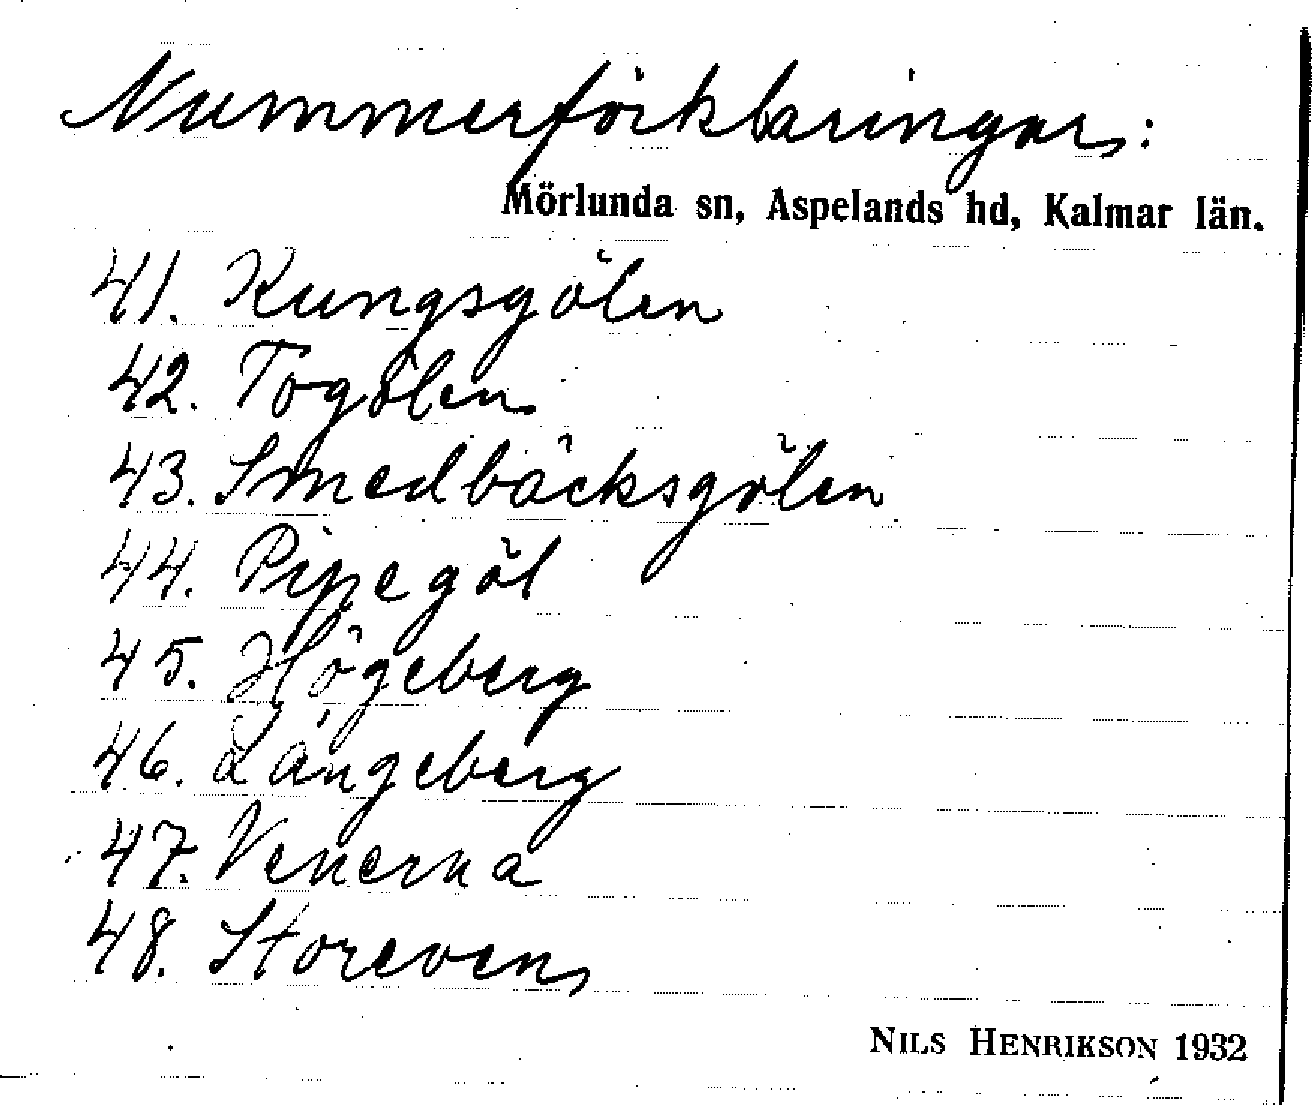 Nummerförklaringar:
Mörlunda sn, Aspelands hd, Kalmar län.
41. Kungsgölen
42. Togölen
43. Smedbäcksgölen
44. Pipegöl
45. Högeberg
46. Långeberg
47. Venerna
48. Storeven
NILS HENRIKSON 1932